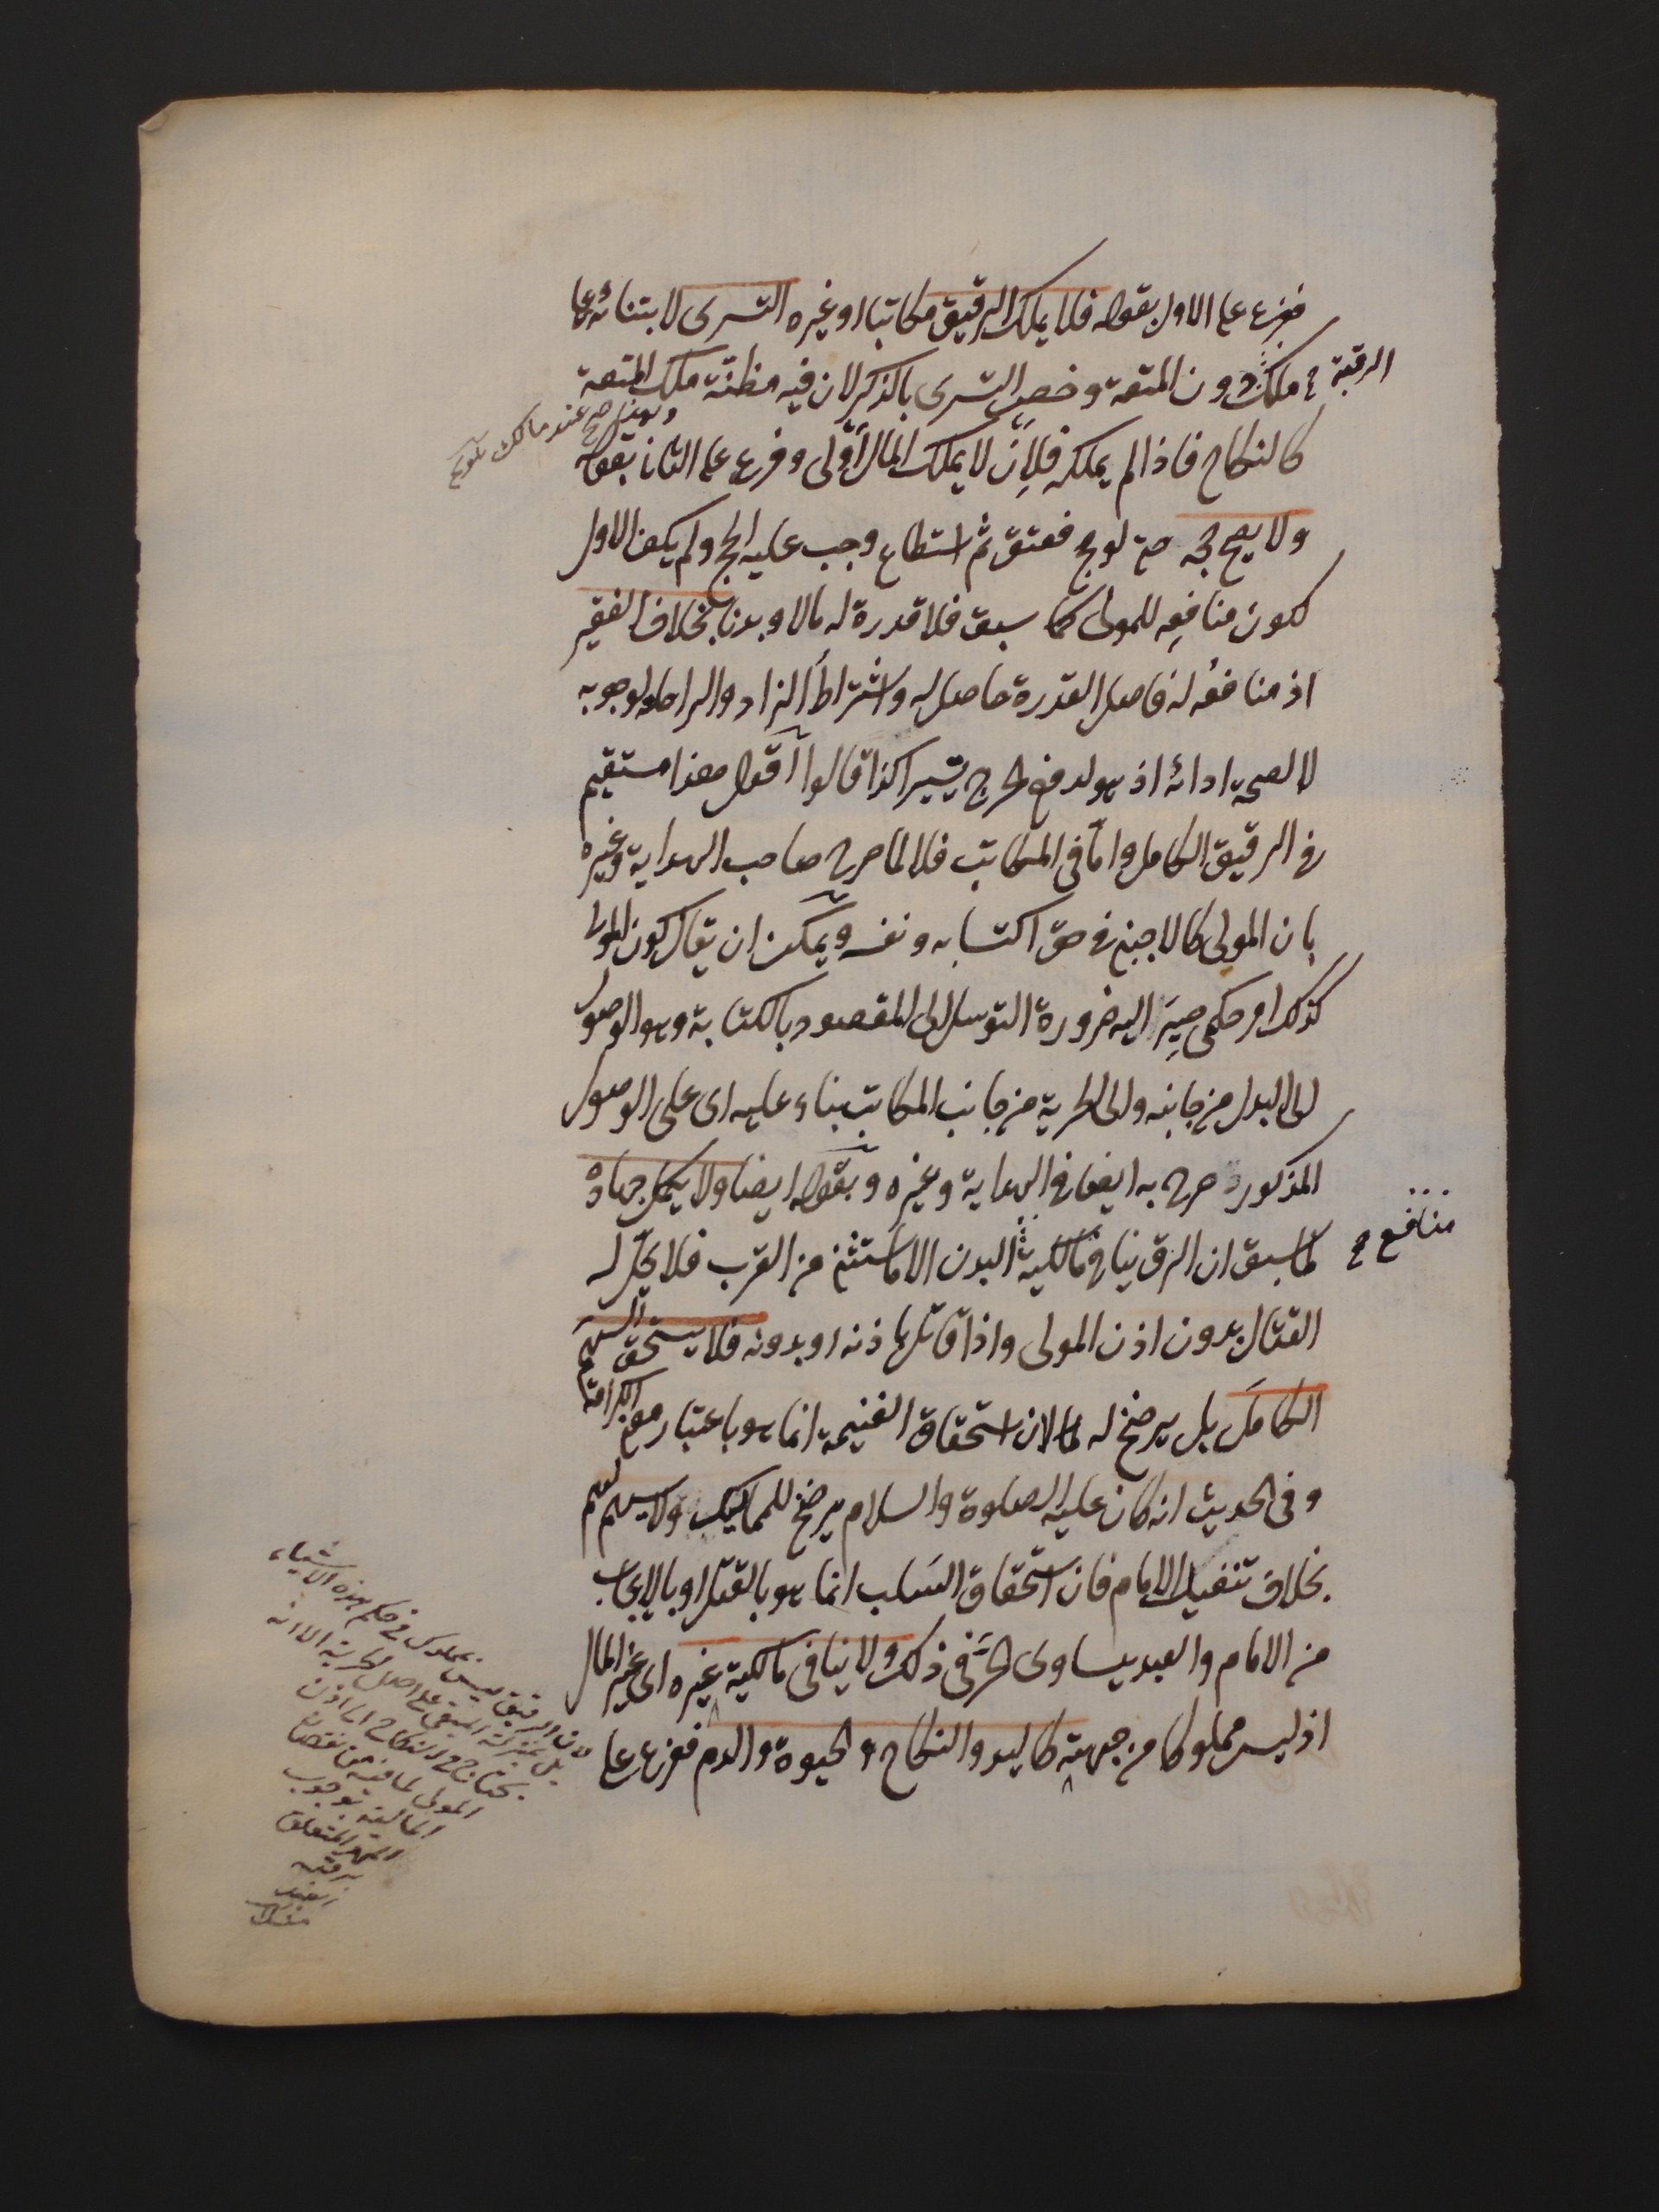 ففرع على الاول بقوله فلا يملك الرقيق مكاتبا او غيره التسرى لابتنائه على
ملك الرقبة دون المتعة وخص التسرى بالذكر لان فيه مظنة ملك المتعة
ولهذا صح عند مالك تلويح
كالنكاح فاذا لم يملكه فلان لا يملك المال اولى وفرع على الثانى بقوله
ولا يصح حجه حتى لو حج فعتق ثم استطاع وجب عليه الحج ولم يكف الاول
لكون منافعه للمولى كما سبق فلا قدرة له مالا وبدنا بخلاف الفقير
اذ منافعه له فاصل القدرة حاصل له واشتراط الزاد والراحلة لوجوبه
لا لصحة ادائه اذ هو لدفع الحرج تيسيرا كذا قالوا اقول هذا مستقيم
فى الرقيق الكامل واما فى المكاتب فلا لما صرح صاحب الهداية وغيره
بان المولى كالاجنبى فى حق اكتسابه ونفسه ويمكن ان يقال كون المولى
كذلك امر حكمى صير اليه ضرورة التوسل الى المقصود بالكتابة وهو الوصول
الى البدل من جانبه والى الحرية من جانب المكاتب بناء عليه اى على الوصول
المذكور صرح به ايضا فى الهداية وغيره وبقوله ايضا ولا يكمل جهاده
لما سبق ان الرق ينافى مالكية منافع البدن الا ما استثنى من القرب فلا يحل له
القتال بدون اذن المولى واذا قاتل باذنه او بدونه فلا يستحق السهم
الكامل بل يرضخ له لما لان استحقاق الغنيمة انما هو باعتبار معنى الكرامة
وفى الحديث انه كان عليه الصلوة والسلام يرضخ للمماليك ولا يسهم لهم
بخلاف تنفيل الامام فان استحقاق السلب انما هو بالقتل او بالايجاب
من الامام والعبد يساوى الحر فى ذلك ولا ينافى مالكية غيره اى غير المال
اذ ليس مملوكا من جهته كاليد والنكاح والحيوة والدم ففرع على
لان الرقيق ليس بمملوك فى حكم هذه الاشياء
بل بمنزلة المبقى على اصل الحرية الا انه
يحتاج فى النكاح الى اذن
المولى لما فيه من نقصان
المالية بوجوب
المهر المتعلق
برقبته